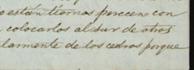 están tiernas perecen con
colocarlos al sur de otros
lamente de los cedros porque